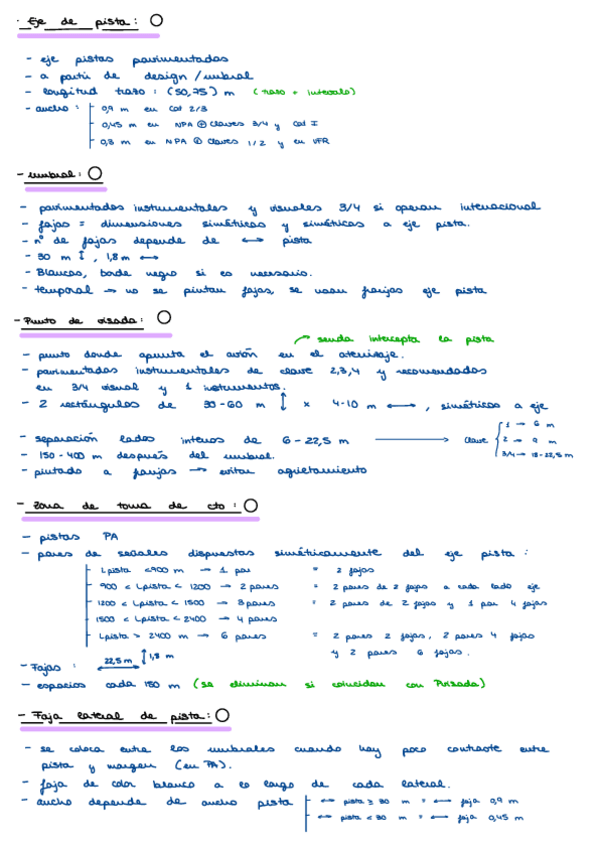 - Eje de pista: ○
- eje pistas pavimentadas
- a partir de design/umbral
- longitud trazo: (50,75) m (trazo + intervalo)
- ancho: 0,9 m en cat 2/3
0,45 m en NPA ⊕ claves 3/4 y cat I
0,3 m en NPA ⊕ claves 1/2 y en VFR
- umbral: ○
- pavimentados instrumentales y visuales 3/4 si operan internacional
- fajas = dimensiones simétricas y simétricas a eje pista.
- nº de fajas depende de ↔ pista
- 30 m ↕, 1,8 m ↔
- Blancas, borde negro si es necesario.
- temporal → no se pintan fajas, se usan franjas eje pista
- Punto de visada: ○
senda intercepta la pista
- punto donde apunta el avión en el aterrizaje.
- pavimentados instrumentales de clave 2,3,4 y recomendados
en 3/4 visual y 1 instrumentos.
- 2 rectángulos de 30-60 m ↕ x 4-10 m ↔, simétricos a eje
- separación lados internos de 6-22,5 m → clave 1 → 6 m
2 → 9 m
3/4 → 18-22,5 m
- 150-400 m después del umbral.
- pintado a franjas → evitar agrietamiento
- Zona de toma de cto: ○
- pistas PA
- pares de señales dispuestas simétricamente del eje pista:
Lpista <900 m → 1 par = 2 fajas
900 < Lpista < 1200 → 2 pares = 2 pares de 2 fajas a cada lado eje
1200 < Lpista < 1500 → 3 pares = 2 pares de 2 fajas y 1 par 4 fajas
1500 < Lpista < 2400 → 4 pares
Lpista > 2400 m → 6 pares = 2 pares 2 fajas, 2 pares 4 fajas
y 2 pares 6 fajas.
- Fajas: 22,5 m ↔ ↕ 1,8 m
- espacios cada 150 m (se eliminan si coincidan con Pvisada)
- Faja lateral de pista: ○
- se coloca entre los umbrales cuando hay poco contraste entre
pista y margen (en PA).
- faja de color blanco a lo largo de cada lateral.
- ancho depende de ancho pista ↔ pista ≥ 30 m = ↔ faja 0,9 m
↔ pista < 30 m = ↔ faja 0,45 m